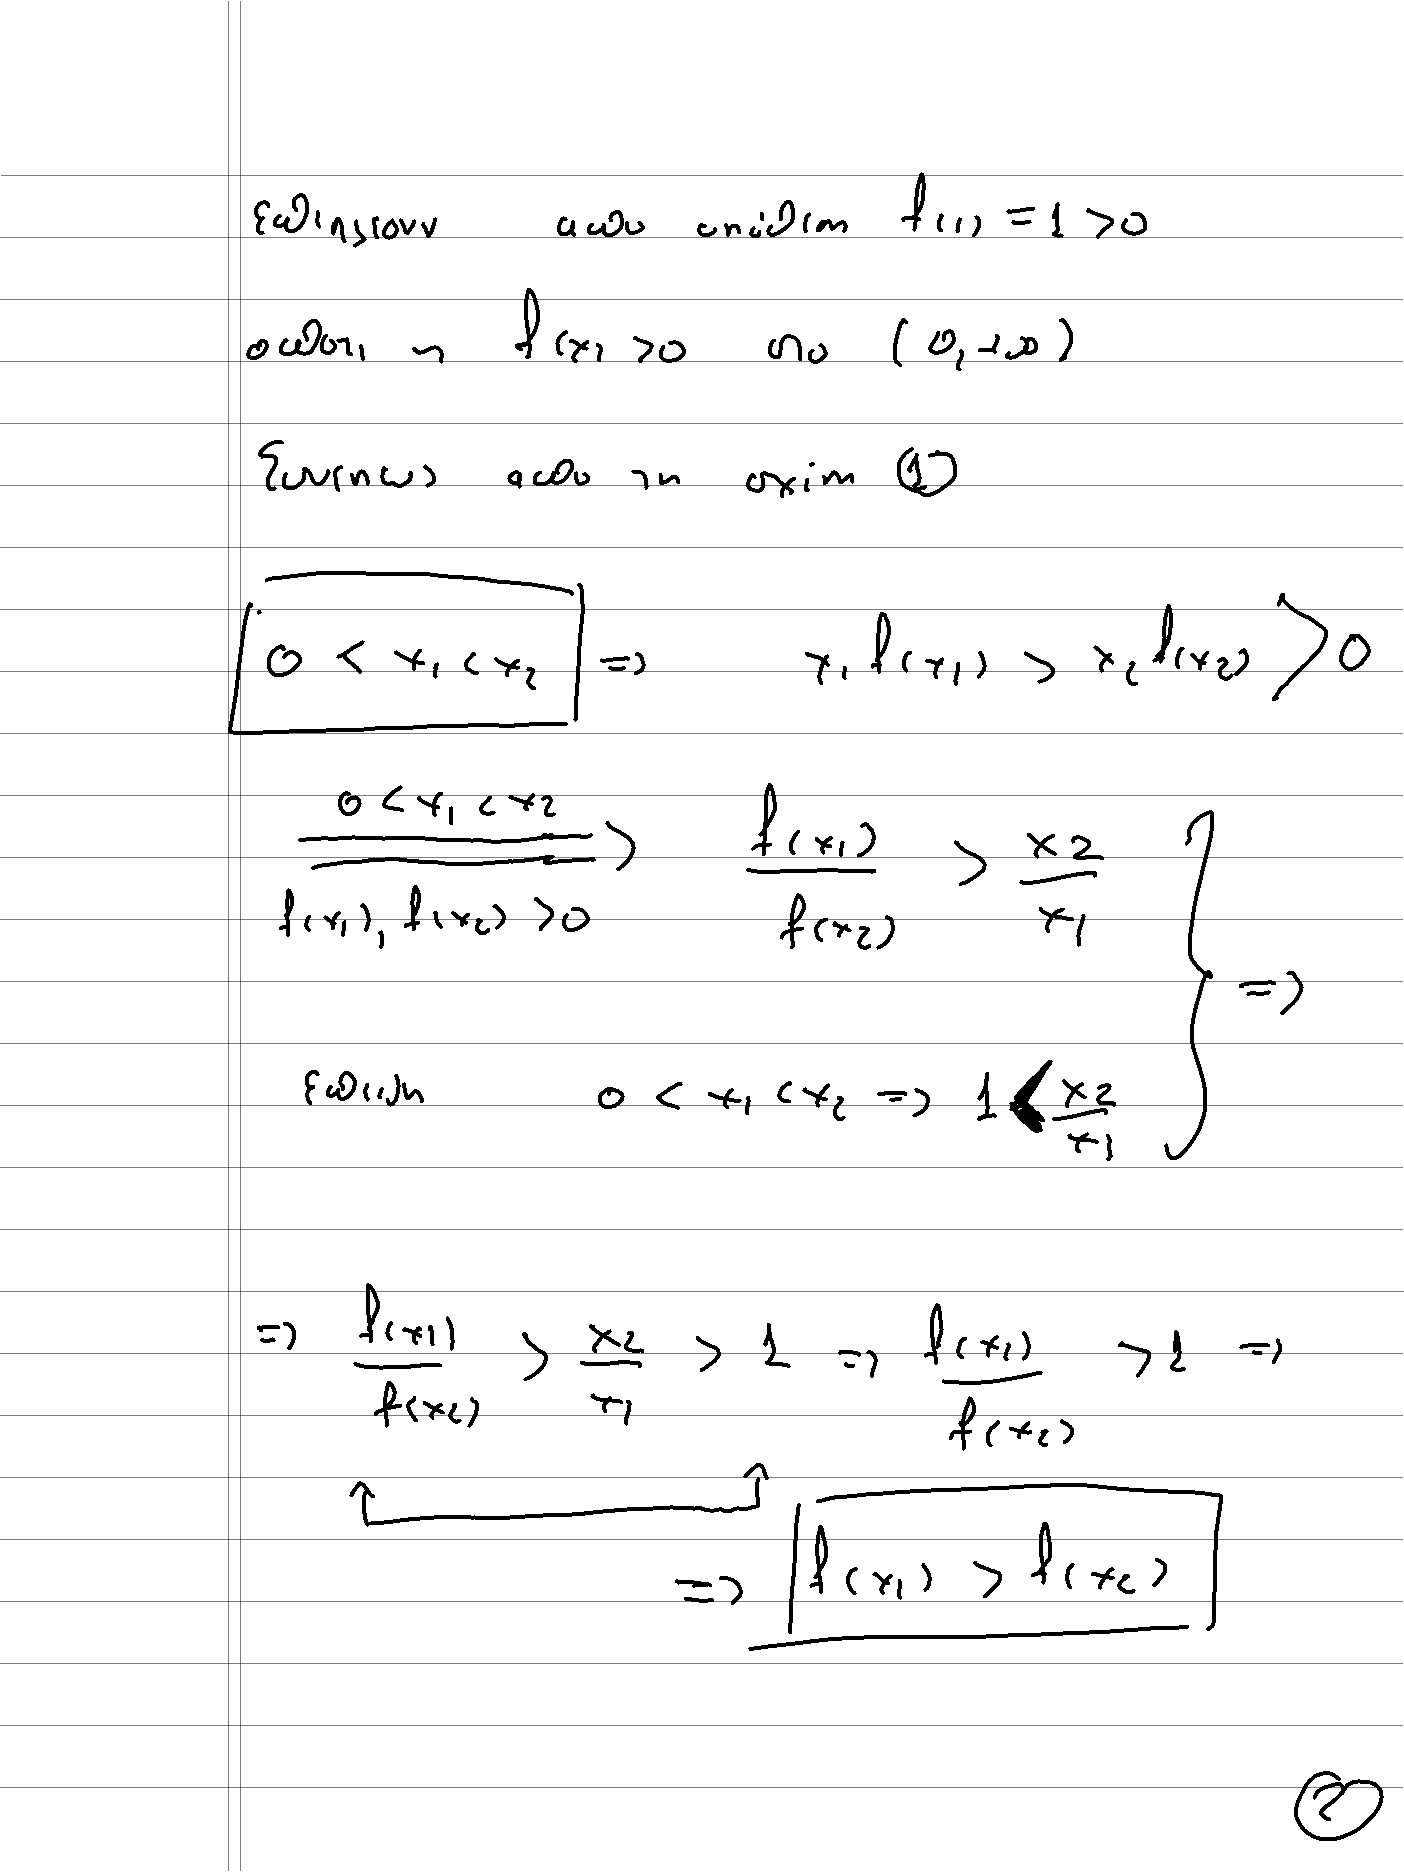 Επιπλέον από υπόθεση f(1) = 1 > 0
οπότε η f(x) > 0 στο (0, +∞)
Συνεπώς από τη σχέση ①
0 < x₁ < x₂ => x₁ f(x₁) > x₂ f(x₂) > 0
0 < x₁ < x₂
f(x₁), f(x₂) > 0
=> f(x₁)/f(x₂) > x₂/x₁
Επειδή 0 < x₁ < x₂ => 1 < x₂/x₁
=>
=> f(x₁)/f(x₂) > x₂/x₁ > 1 => f(x₁)/f(x₂) > 1 =>
=> f(x₁) > f(x₂)
②